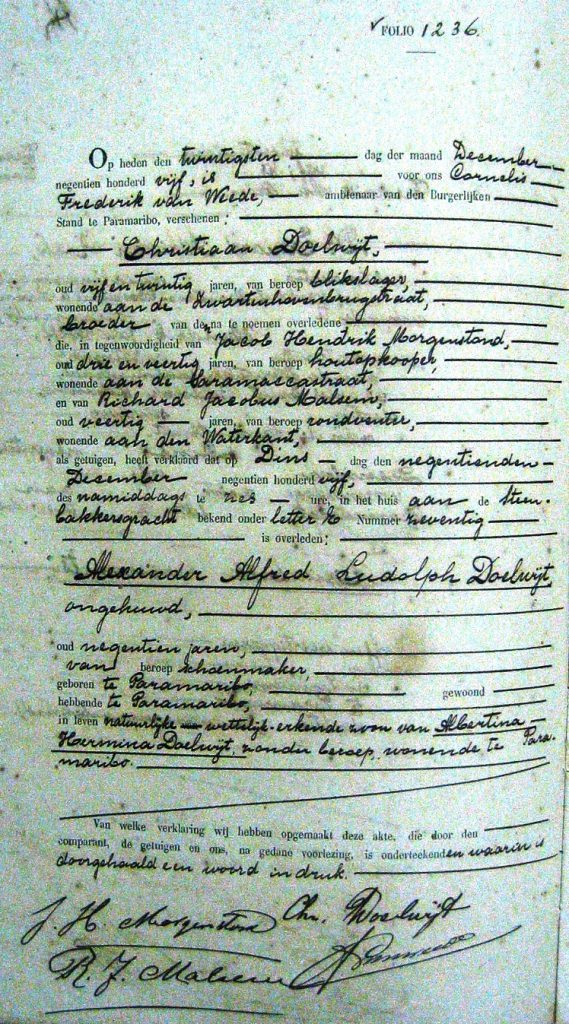 FOLIO 1236.
Op heden den twintigsten dag der maand December
negentien honderd vijf, is voor ons Cornelis
Frederik van Wiede, ambtenaar van den Burgerlijken
Stand te Paramaribo, verschenen:
Christiaan Doelwijt,
oud vijf en twintig jaren, van beroep blikslager,
wonende aan de Zwartenhovenbrugstraat,
broeder van de na te noemen overledene
die, in tegenwoordigheid van Jacob Hendrik Morgenstond,
oud drie en veertig jaren, van beroep houtopkooper,
wonende aan de Saramaccastraat,
en van Richard Jacobus Malsem,
oud veertig jaren, van beroep rondventer,
wonende aan den Waterkant,
als getuigen, heeft verklaard dat op Dins- dag den negentienden
December negentien honderd vijf,
des namiddags te zes ure, in het huis aan de Steen-
bakkersgracht bekend onder letter Nummer zeventig
is overleden:
Alexander Alfred Ludolph Doelwijt,
ongehuwd,
oud negentien jaren,
van beroep schoenmaker,
geboren te Paramaribo, gewoond
hebbende te Paramaribo,
in leven natuurlijke wettelijk-erkende zoon van Albertina
Hermina Doelwijt, zonder beroep, wonende te Para-
maribo.
Van welke verklaring wij hebben opgemaakt deze akte, die door den
comparant, de getuigen en ons, na gedane voorlezing, is onderteekend en waarin is
doorgehaald een woord in druk.
J. H. Morgenstond Chr. Doelwijt
R. J. Malsem